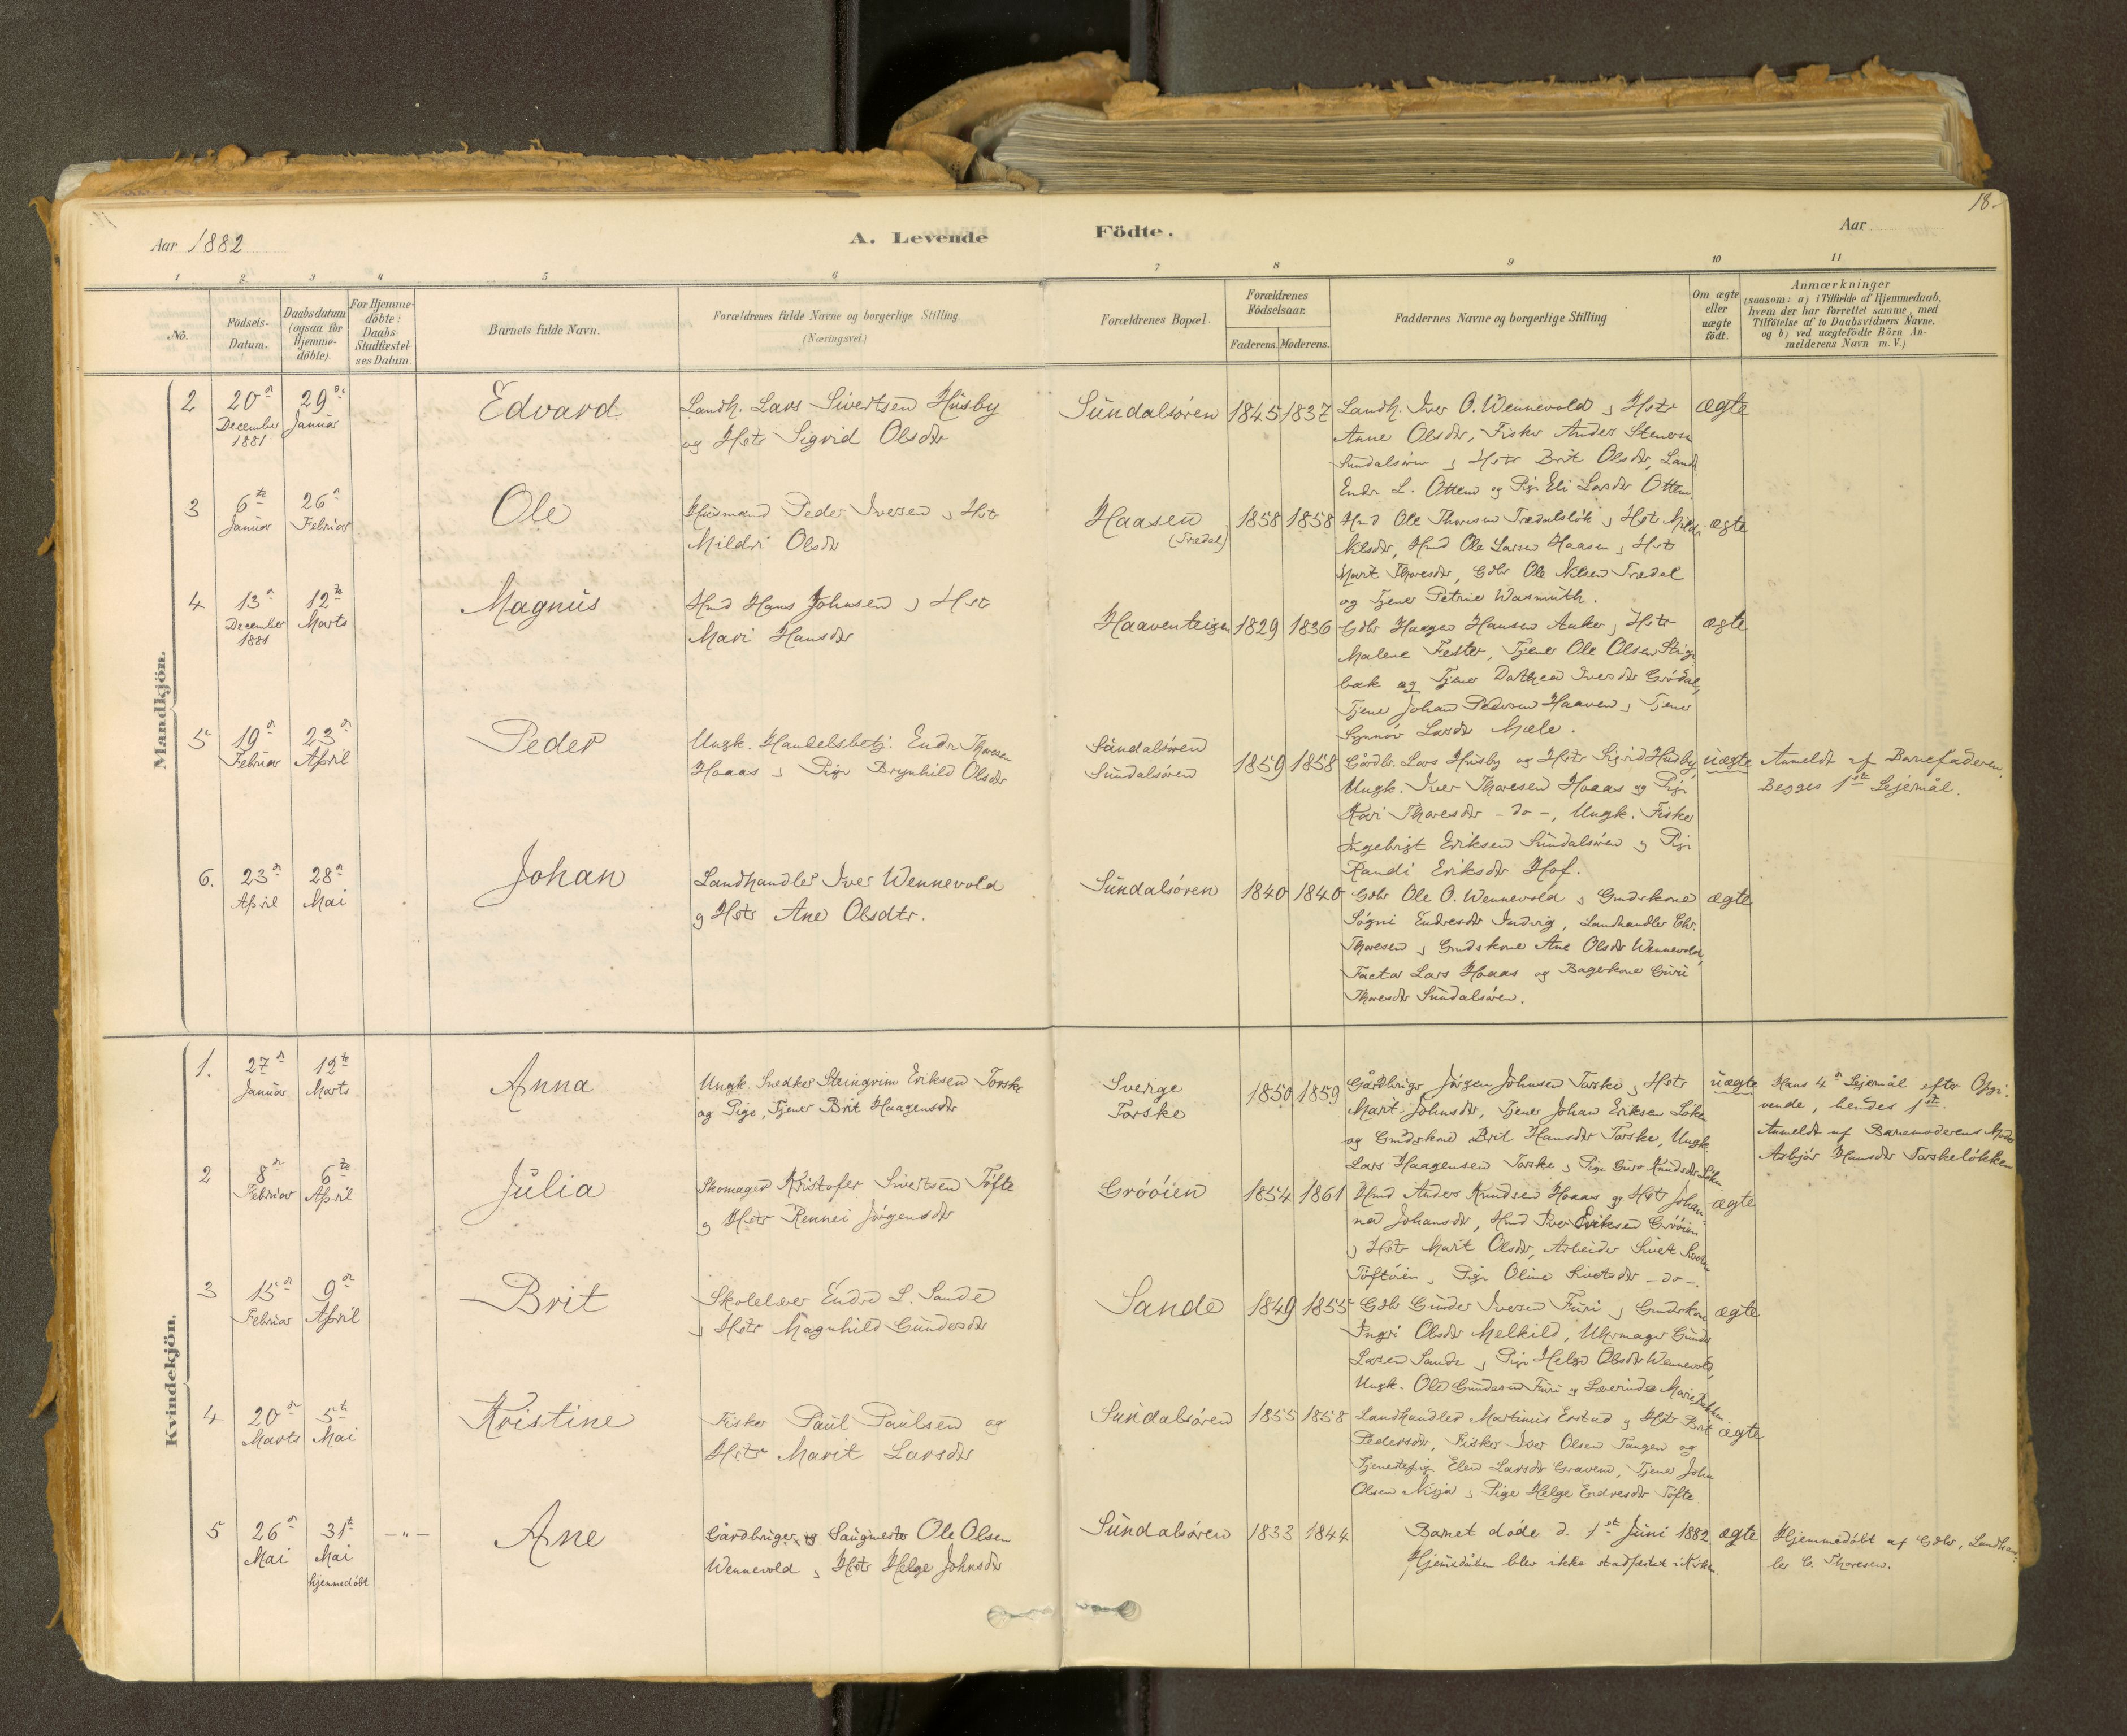 18.
Aar 1882
A. Levende Födte.
Aar
1 2 3 4 5 6 7 8 9 10 11
No.
Födsels-
Datum.
Daabsdatum
(ogsaa for
Hjemme-
döbte).
For Hjemme-
döbte:
Daabs-
Stadfæstel-
ses Datum.
Barnets fulde Navn.
Forældrenes fulde Navne og borgerlige Stilling.
(Næringsvei.)
Forældrenes Bopæl.
Forældrenes
Födselsaar.
Faderens. Moderens.
Faddernes Navne og borgerlige Stilling
Om ægte
eller
uægte
födt.
Anmærkninger
(saasom: a) i Tilfælde af Hjemmedaab,
hvem der har forrettet samme, med
Tilföielse af to Daabsvidners Navne.
og b) ved uægtefödte Börn An-
melderens Navn m. V.)
Mandkjön.
2
20de
December
1881
29de
Januar
Edvard
Landh. Lars Sivertsen Husby
og Hstr Sigrid Olsdtr
Sundalsören
1845 1837
Landh. Iver O. Wennevold og Hstr
Anne Olsdtr, Fisker Anders Stenersen
Sundalsören og Hstr Brit Olsdtr, Landh
Endr. L. Ottem og Pige Eli Larsdtr Ottem
ægte
3
6te
Januar
26de
Februar
Ole
Husmand Peder Iversen og Hstr
Mildri Olsdtr
Haasen
(Trædal)
1858 1858
Hmd Ole Thoresen Trædalslök og Hst Mildri
Nilsdtr, Hmd Ole Larsen Haasen og Hstr
Marit Thoresdtr, Gdbr Ole Nilsen Trædal
og Tjener Petrine Wasmuth.
ægte
4
13de
December
1881
12te
Marts
Magnus
Hmd Hans Johnsen og Hst
Mari Hansdtr
Haaventeigen
1829 1836
Gdbr Haagen Hansen Aaker og Hstr
Malene Fester, Tjener Ole Olsen Stige
bak og Tjener Dorthea Iversdtr Grödal,
Tjener Johan Pedersen Haaven og Tjener
Synnöv Larsdtr Mæle.
ægte
5
19de
Februar
23de
April
Peder
Ungk. Handelsbetj. Endr Thoresen
Hoaas og Pige Brynhild Olsdtr
Sundalsören
Sundalsören
1859 1858
Gårdbr. Lars Husby og Hstr Sigrid Husby,
Ungk. Iver Thoresen Hoaas og Pige
Kari Thoresdtr - do -, Ungk. Fisker
Ingebrigt Eriksen Sundalsören og Pige
Randi Eriksdtr Hof.
uægte
Anmeldt af Barnefaderen.
Begges 1ste Lejermål.
6.
23de
April
28de
Mai
Johan
Landhandler Iver Wennevold
og Hstr Ane Olsdtr.
Sundalsören
1840 1840
Gdbr Ole O. Wennevold og Grudskone
Sögni Endresdtr Indvig, Landhandler Chr.
Thoresen og Grudskone Ane Olsdtr Wennevold,
Factor Lars Hoaas og Bagerkone Guru
Thoresdtr Sundalsören.
ægte
Kvindekjön.
1.
27de
Januar
12te
Marts
Anna
Ungk. Snedker Steingrim Eriksen Torske
og Pige, Tjener Brit Haagensdtr
Sverige
Torske
1850 1859
Gårdbruger Jörgen Johnsen Torske og Hstr
Marit Johnsdtr, Tjener Johan Eriksen Löken
og Grudskone Brit Hansdtr Torske, Ungk.
Lars Haagensen Torske og Pige Guro Knudsdtr Löken
uægte
Hans 4de Lejermål efter Opgi-
vende, hendes 1ste.
Anmeldt af Barnemoderens Moder
Asbjör Hansdtr Torskelökken
2
8de
Februar
6te
April
Julia
Skomager Kristofer Sivertsen Töfte
og Hstr Rennei Jörgensdtr
Gröóien
1854 1861
Hmd Anders Knudsen Hoaas og Hstr Johan-
na Johansdtr, Hmd Iver Eriksen Gröóien
og Hstr Marit Olsdtr, Arbeider Sivert Sivertsen
Töftóien og Pige Oline Sivertsdtr - do -.
ægte
3
15de
Februar
9de
April
Brit
Skolelærer Endre L. Sande
og Hstr Magnhild Gundersdtr
Sande
1849 1855
Gdbr Gunder Iversen Furu og Grudskone
Ingri Olsdtr Melkild, Uhrmager Gunder
Larsen Sande og Pige Helge Olsdtr Wennevold,
Ungk. Ole Gundersen Furu og Lærerinde Marie Bakken
ægte
4
20de
Marts
5te
Mai
Kristine
Fisker Paul Paulsen og
Hstr Marit Larsdtr
Sundalsören
1855 1858
Landhandler Martinus Erstad og Hstr Brit
Pedersdtr, Fisker Iver Olsen Tangen og
Tjenestepige Elen Larsdtr Gravem, Tjener John
Olsen Nisja og Pige Helge Endresdtr Töfte
ægte
5
26de
Mai
31te
Mai
hjemmedöbt
- " -
Ane
Gårdbruger og Saugmester Ole Olsen
Wennevold og Hstr Helge Johnsdtr
Sundalsören
1833 1844
Barnet döde d. 1ste Juni 1882.
Hjemedåben blev ikke stadfæstet i Kirken.
ægte
Hjemmedöbt af Gdbr, Landhand-
ler C. Thoresen.